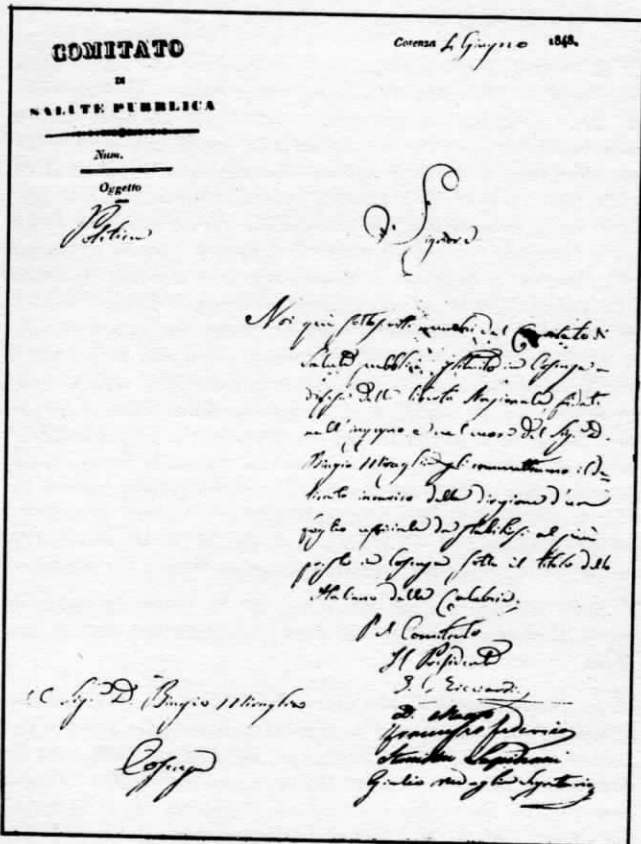 COMITATO
DI
SALUTE PUBBLICA
Cosenza 4 Giugno 1848.
Num.
Oggetto
Politica
Signore
Noi qui sottoscritti membri del Comitato di
Salute pubblica, istituito in Cosenza a
difesa della libertà Nazionale, fidati
nell'ingegno e nel cuore del Sig. D.
Biagio Miraglia gli commettiamo il de-
licato incarico della direzione d'un
foglio officiale da stabilirsi al più
presto in Cosenza sotto il titolo della
Italiano delle Calabrie.
Pel Comitato
Il Presidente
G. Ricciardi
D. Mauro
Francesco Federici
Stanislao Lupinacci
Giulio Medaglia Segretario
Sig. D. Biagio Miraglia
Cosenza